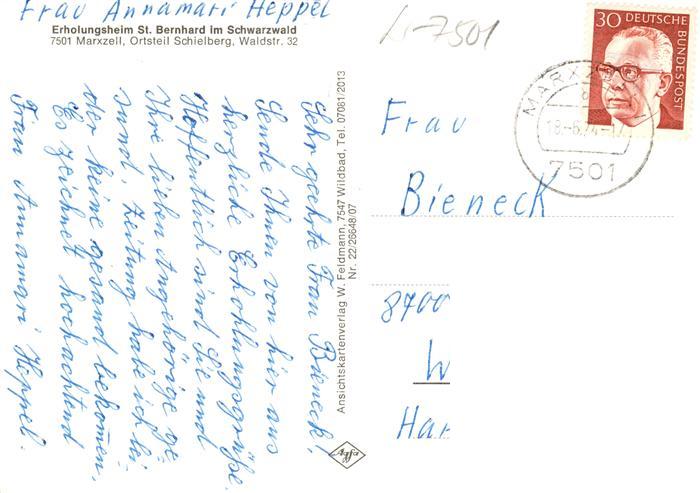 Frau Annamari Heppel
Erholungsheim St. Bernhard im Schwarzwald
7501 Marxzell, Ortsteil Schielberg, Waldstr. 32
Sehr geehrte Frau Bieneck!
Sende Ihnen von hier aus
herzliche Erhohlungsgrüße.
Hoffentlich sind Sie und
Ihre lieben Angehörige ge
sund. Zeitung habe ich lei
der keine gesand bekommen.
Es zeichnet hochachtend
Frau Annamari Heppel.
Ansichtskartenverlag W. Feldmann, 7547 Wildbad, Tel. 07081/2013
Nr. 22/26648/07
Agfa
7501
30 DEUTSCHE
BUNDESPOST
MARXZ
18.-6.74-17
7501
Frau
Bieneck
8700
W
Har